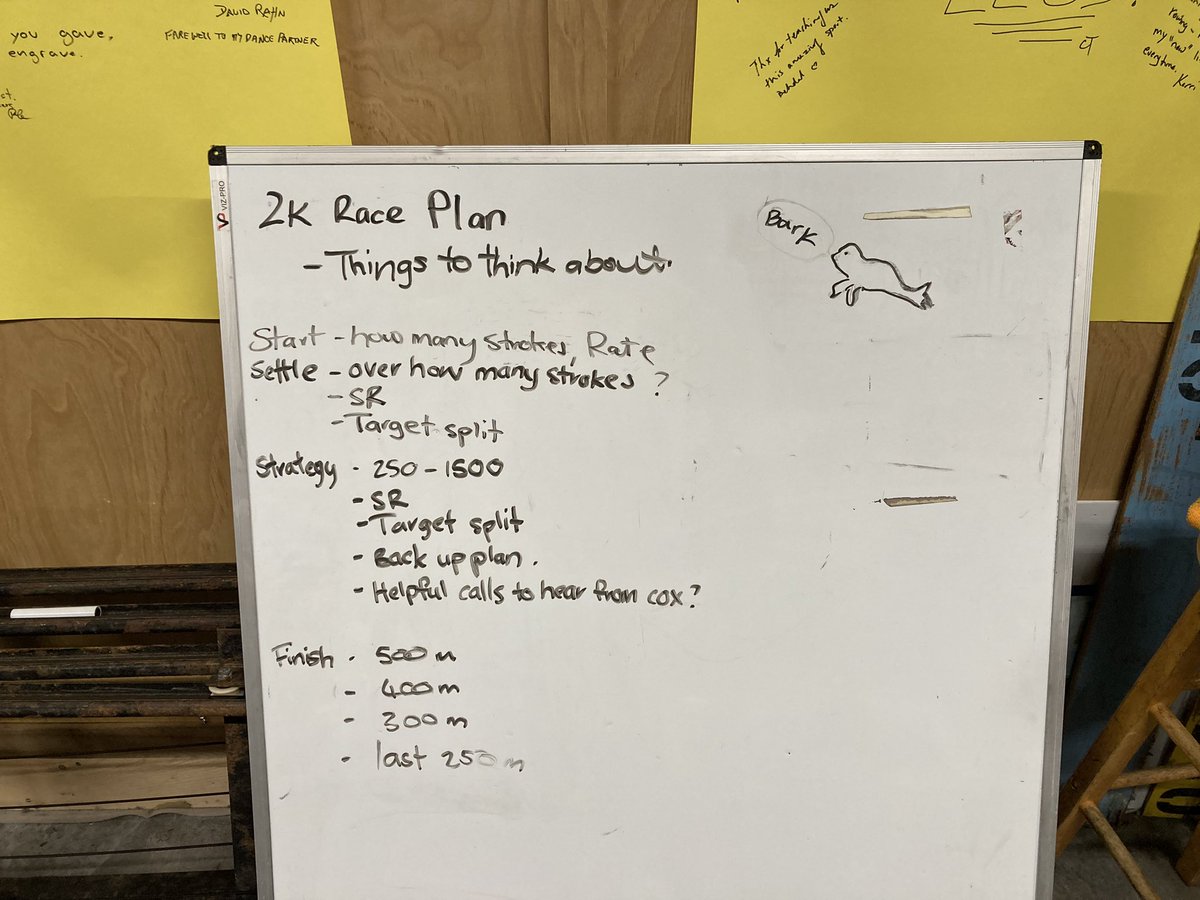 DAVID RAHN
you gave,
engrave.
FAREWELL TO MY DANCE PARTNER
Thx for teaching us
this amazing sport.
CJ
my "new"
everytime.
VIZ-PRO
2K Race Plan
- Things to think about.
Bark
Start - how many strokes, Rate
Settle - over how many strokes ?
- SR
- Target split
Strategy - 250 - 1500
- SR
- Target split
- Back up plan.
- Helpful calls to hear from cox?
Finish - 500 m
- 400 m
- 300 m
- last 250 m